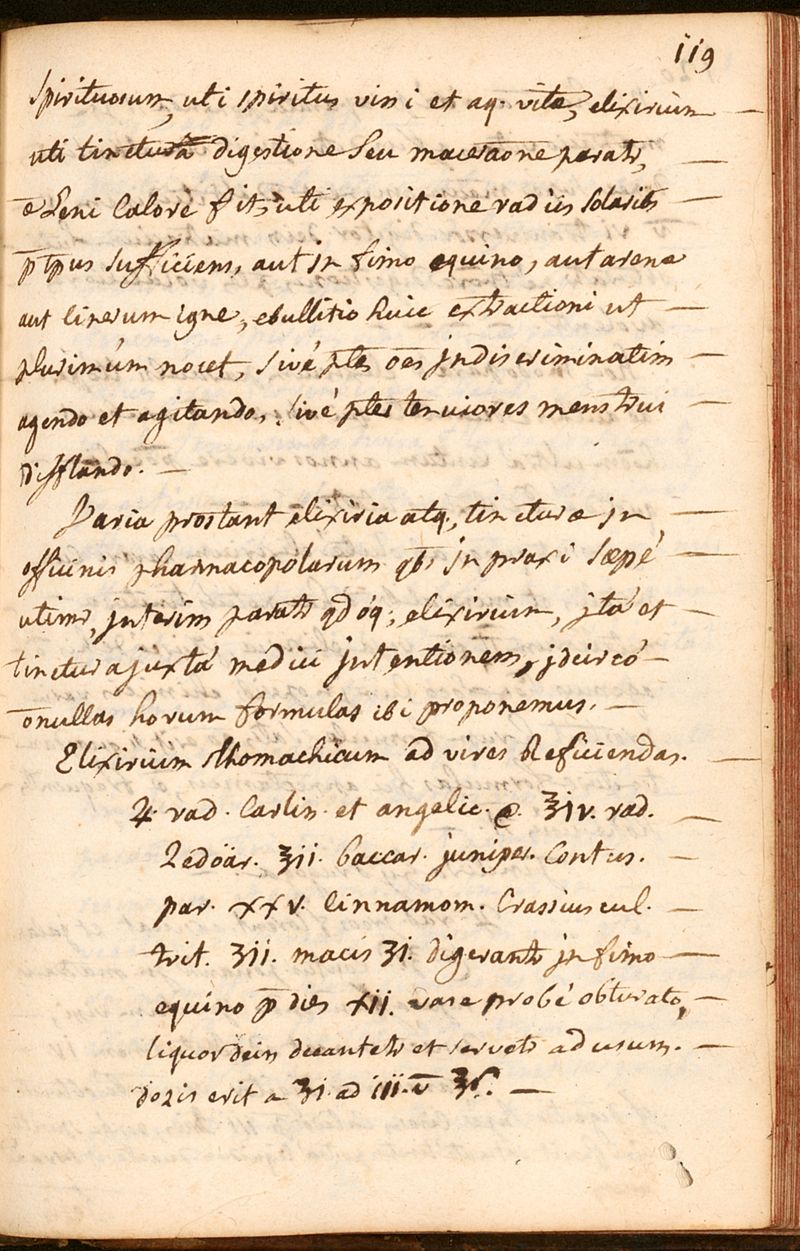 119
Spirituosum, uti spiritus vini et aq. vitæ, elixirium
uti tinctura digestione seu maceraōne paratr,
ē leni calore fit, uti expositione radiis solarib
sufficiens, aut in fimo equino, aut arenæ
aut cinerum igne, ebullitio huic extractioni ut
plurimúm nocet, sivé ptes oēs jndiscriminatim
agendo et agitando, sivé ptes tenuiores menstrui
difflando. —
Varia prostant elixiria atq, tincturæ jn
officinis pharmacopolarum qb, jn praxi sæpé
utimr, jnterim paratr qdóq, elixirium, jtá et
tinctura juxtá medici jntentionem, jdcircó —
ōnullas horum formulas ibi proponemus. —
Elixirium sthomachicum ad vires reficiendas. —
♃ rad. Carlin. et angelic. a. ʒiv. rad. —
Zedoär. ʒii. baccar. juniper. Contus. —
par. xxv. Cinnamom. Crassiuscul. —
trit. ʒii. macis ʒi. digerantr jn fimo —
equino p̄ dies xii. vase probé obturato, —
liquor dein decantetr et servetr ad usum. —
dozis erit a ʒi. ad iii. v̄ ʒß. —